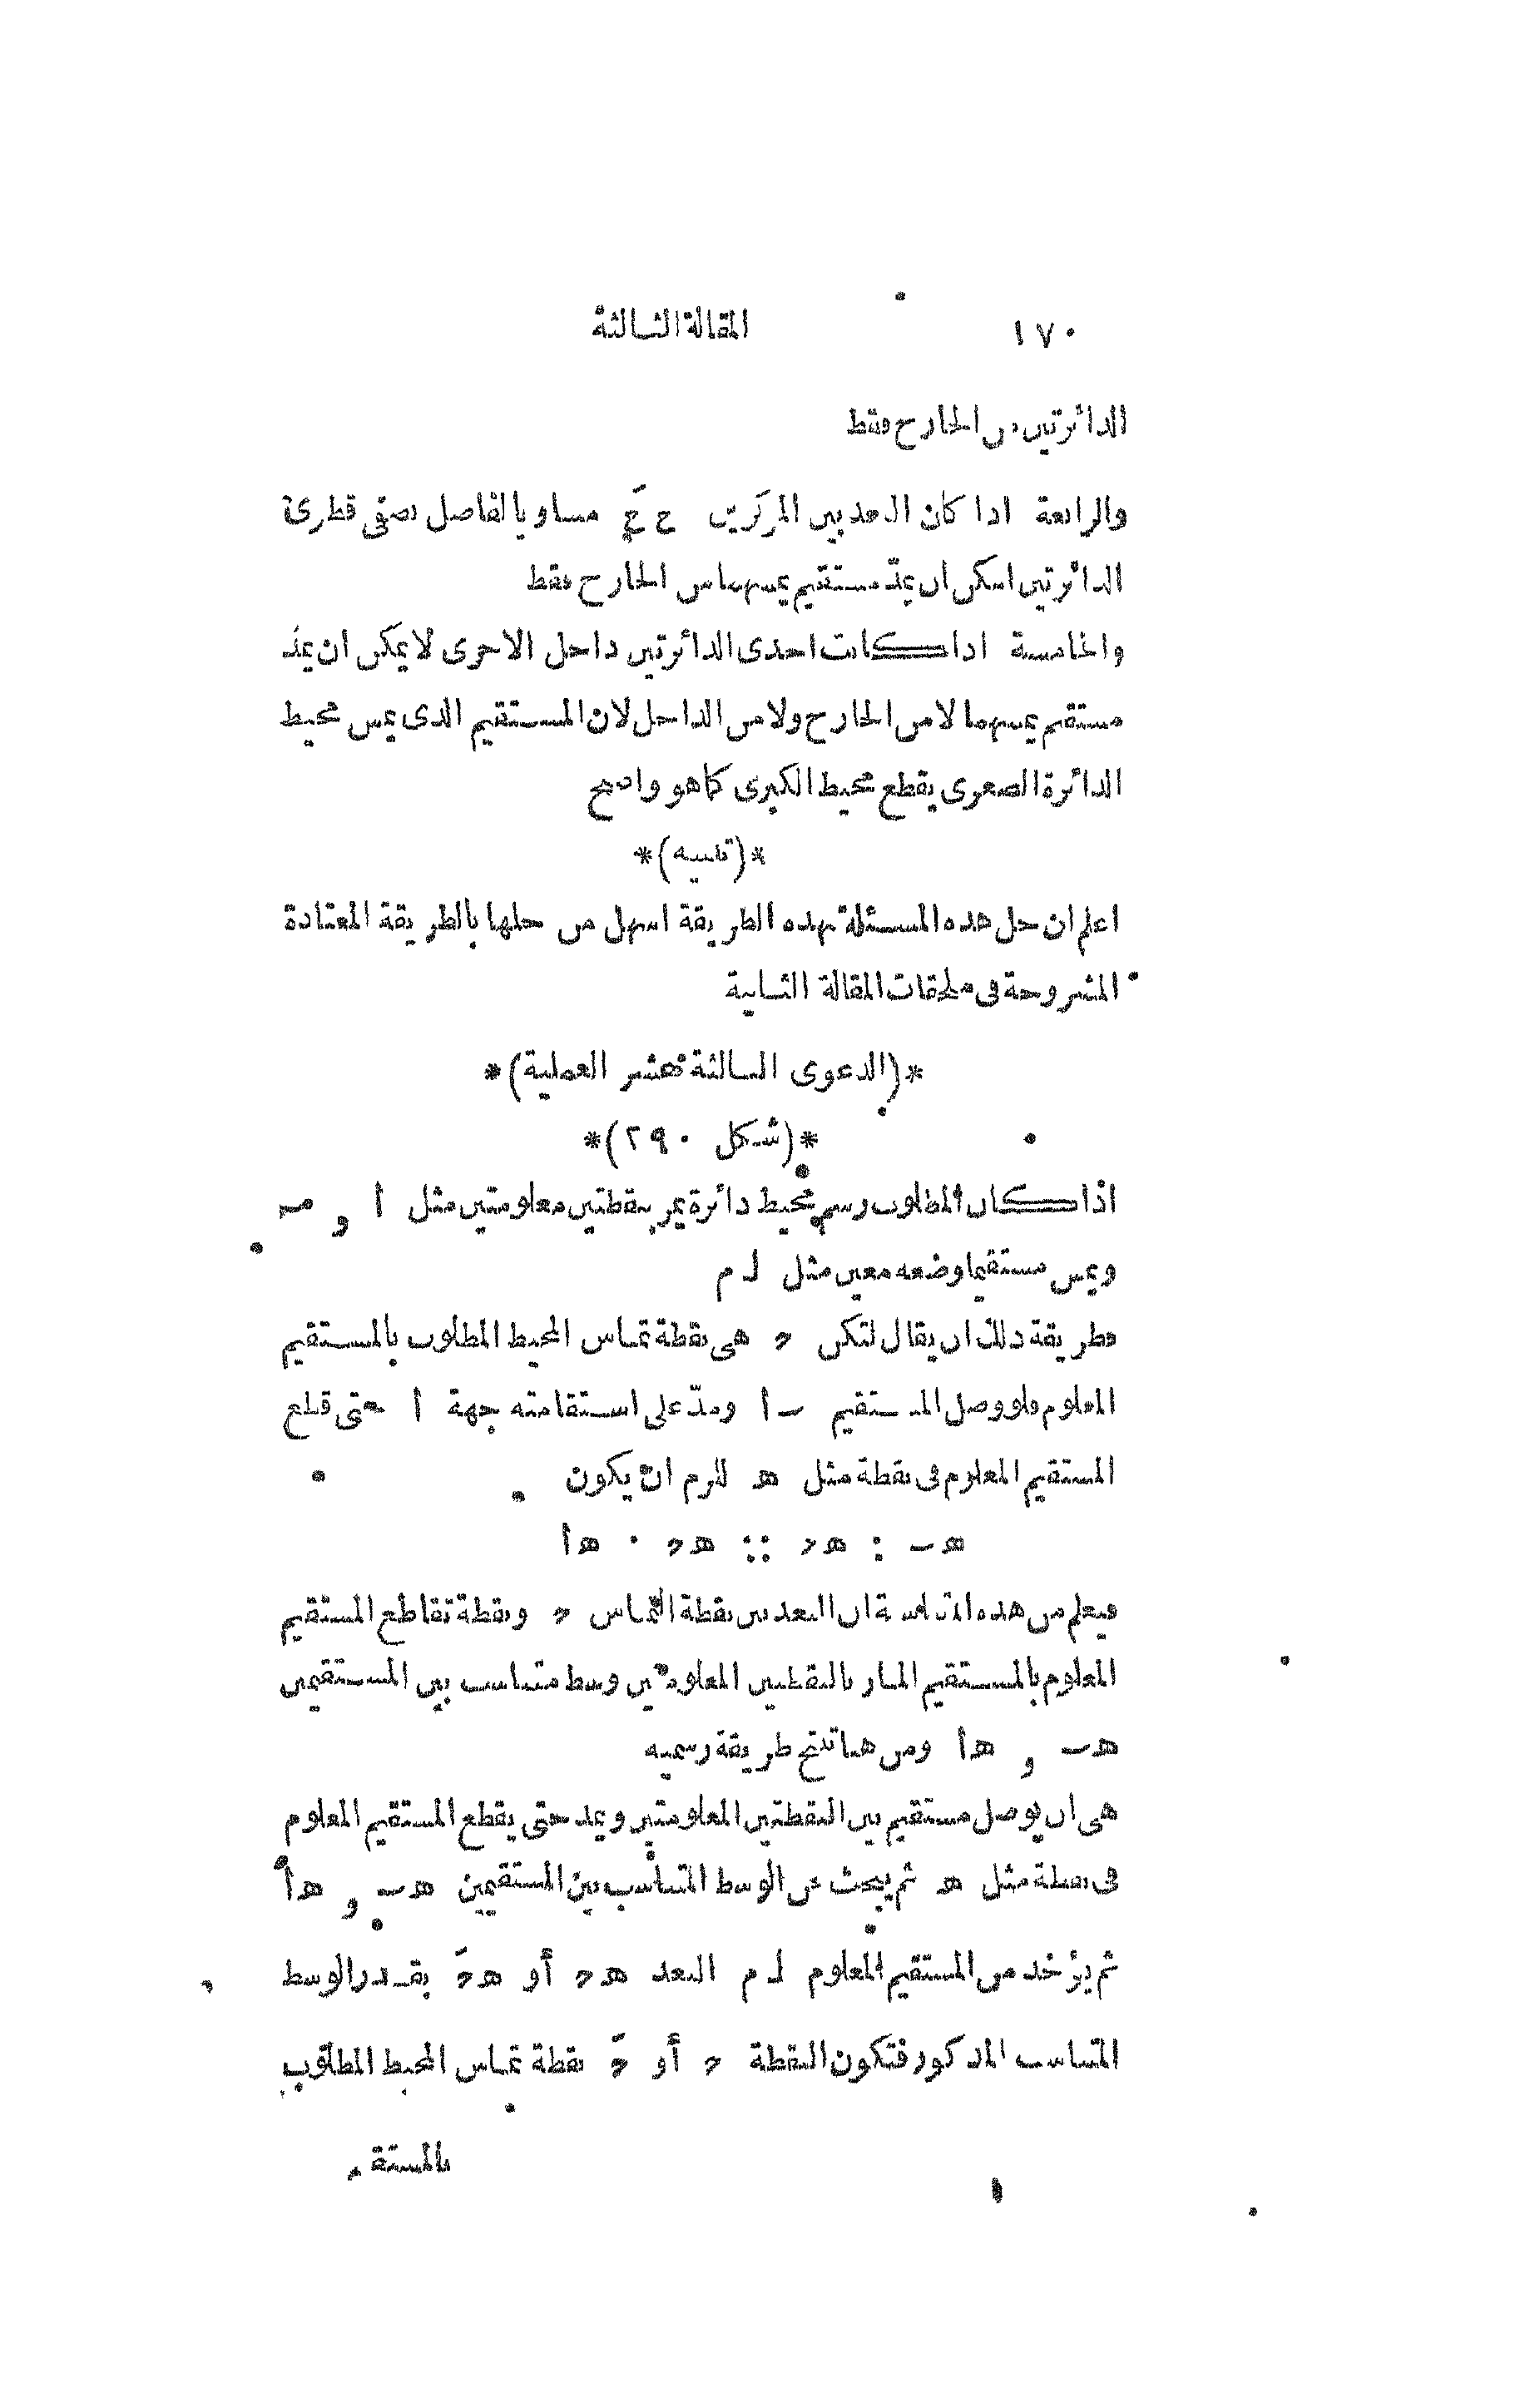 ١٧٠ المقالة الثالثة
الدائرتين من الخارج فقط
والرابعة اذا كان البعد بين المركزين ح حَ مساويا لفاصل نصفى قطرى
الدائرتين امكن ان يمدّ مستقيم يمسهما من الخارج فقط
والخامسة اذا كانت احدى الدائرتين داخل الاخرى لا يمكن ان يمدّ
مستقيم يمسهما لا من الخارج ولا من الداخل لان المستقيم الذى يمس محيط
الدائرة الصغرى يقطع محيط الكبرى كما هو واضح
*(تنبيه)*
اعلم ان حل هذه المسئلة بهذه الطريقة اسهل من حلها بالطريقة المعتادة
المشروحة فى ملحقات المقالة الثانية
*(الدعوى الثالثة عشر العملية)*
*(شكل ٢٩٠)*
اذا كان المطلوب رسم محيط دائرة يمر بنقطتين معلومتين مثل ا و ب
ويمس مستقيما وضعه معين مثل ل م
فطريقة ذلك ان يقال لتكن د هى نقطة تماس المحيط المطلوب بالمستقيم
المعلوم فلو وصل المستقيم ب ا ومدّ على استقامته جهة ا حتى قطع
المستقيم المعلوم فى نقطة مثل ه للزم ان يكون
ه ب : ه د :: ه د : ه ا
فيعلم من هذه المتناسبة ان البعد بين نقطة التماس د ونقطة تقاطع المستقيم
المعلوم بالمستقيم المار بالنقطتين المعلومتين وسط متناسب بين المستقيمين
ه ب و ه ا ومن هنا تنتج طريقة رسميه
هى ان يوصل مستقيم بين النقطتين المعلومتين ويمد حتى يقطع المستقيم المعلوم
فى نقطة مثل ه ثم يبحث عن الوسط المتناسب بين المستقيمين ه ب و ه ا
ثم يؤخذ من المستقيم المعلوم ل م البعد ه د أو ه دَ بقدر الوسط
المتناسب المذكور فتكون النقطة د أو دَ نقطة تماس المحيط المطلوب
بالمستقيم